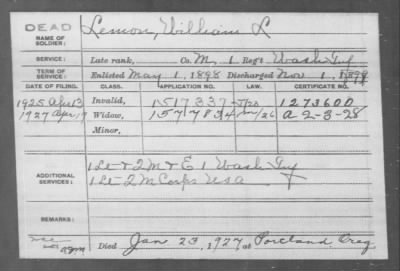 DEAD
NAME OF SOLDIER: Lemon, William L
SERVICE: Late rank, Co. M, 1 Reg't Wash Inf
TERM OF SERVICE: Enlisted May 1, 1898 Discharged Nov 1, 1899
DATE OF FILING. CLASS. APPLICATION NO. LAW. CERTIFICATE NO.
1925 Apl 13 Invalid, 1517337 1273600
1927 Apr Widow, 1577834 A-2-3-28
Minor,
ADDITIONAL SERVICES: 1 Lt & 2 M & E 1 Wash Inf
1 Lt 2 M Corps USA
REMARKS:
Died Jan 23, 1927, at Portland Oreg